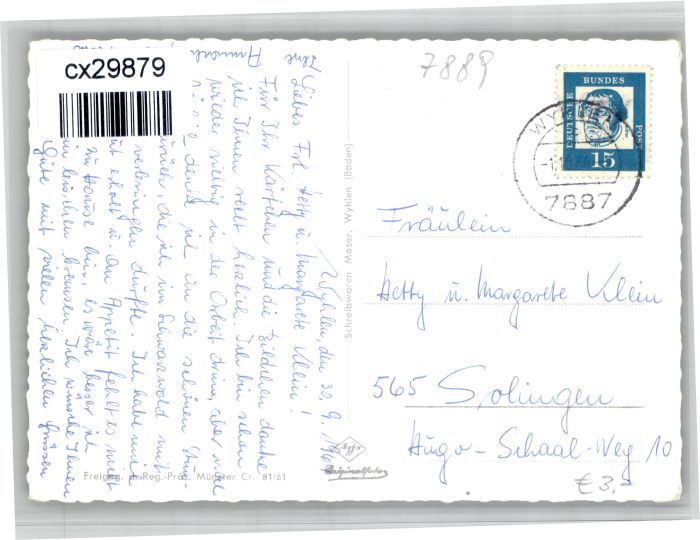 cx29879
7889
DEUTSCHE
BUNDES
POST
15
WYHLEN
7887
Wyhlen, den 30. 9. 196
Liebes Frl. Hetty u. Margarete Klein!
Für Ihr Kärtchen und die Bildchen danke
ich Ihnen recht herzlich. Ich bin schon
wieder richtig in der Arbeit drin, aber
denke ich an die schönen
zurück, die ich im Schwarzwald mit
verbringen durfte. Ich habe mich
gut erholt u. an Appetit fehlt es nicht
zu Hause bin, es wäre besser ich
ein bisschen bremsen. Ich wünsche Ihnen
Gute mit vielen herzlichen Grüssen
Ihre
Annemarie
Schreibwaren Moser, Wyhlen (Baden)
Originalfoto
Freigeg. d. Reg.-Präs. Münster Cr. 81/61
Fräulein
Hetty u. Margarete Klein
565 Solingen
Hugo-Schaal-Weg 10
€ 3,-